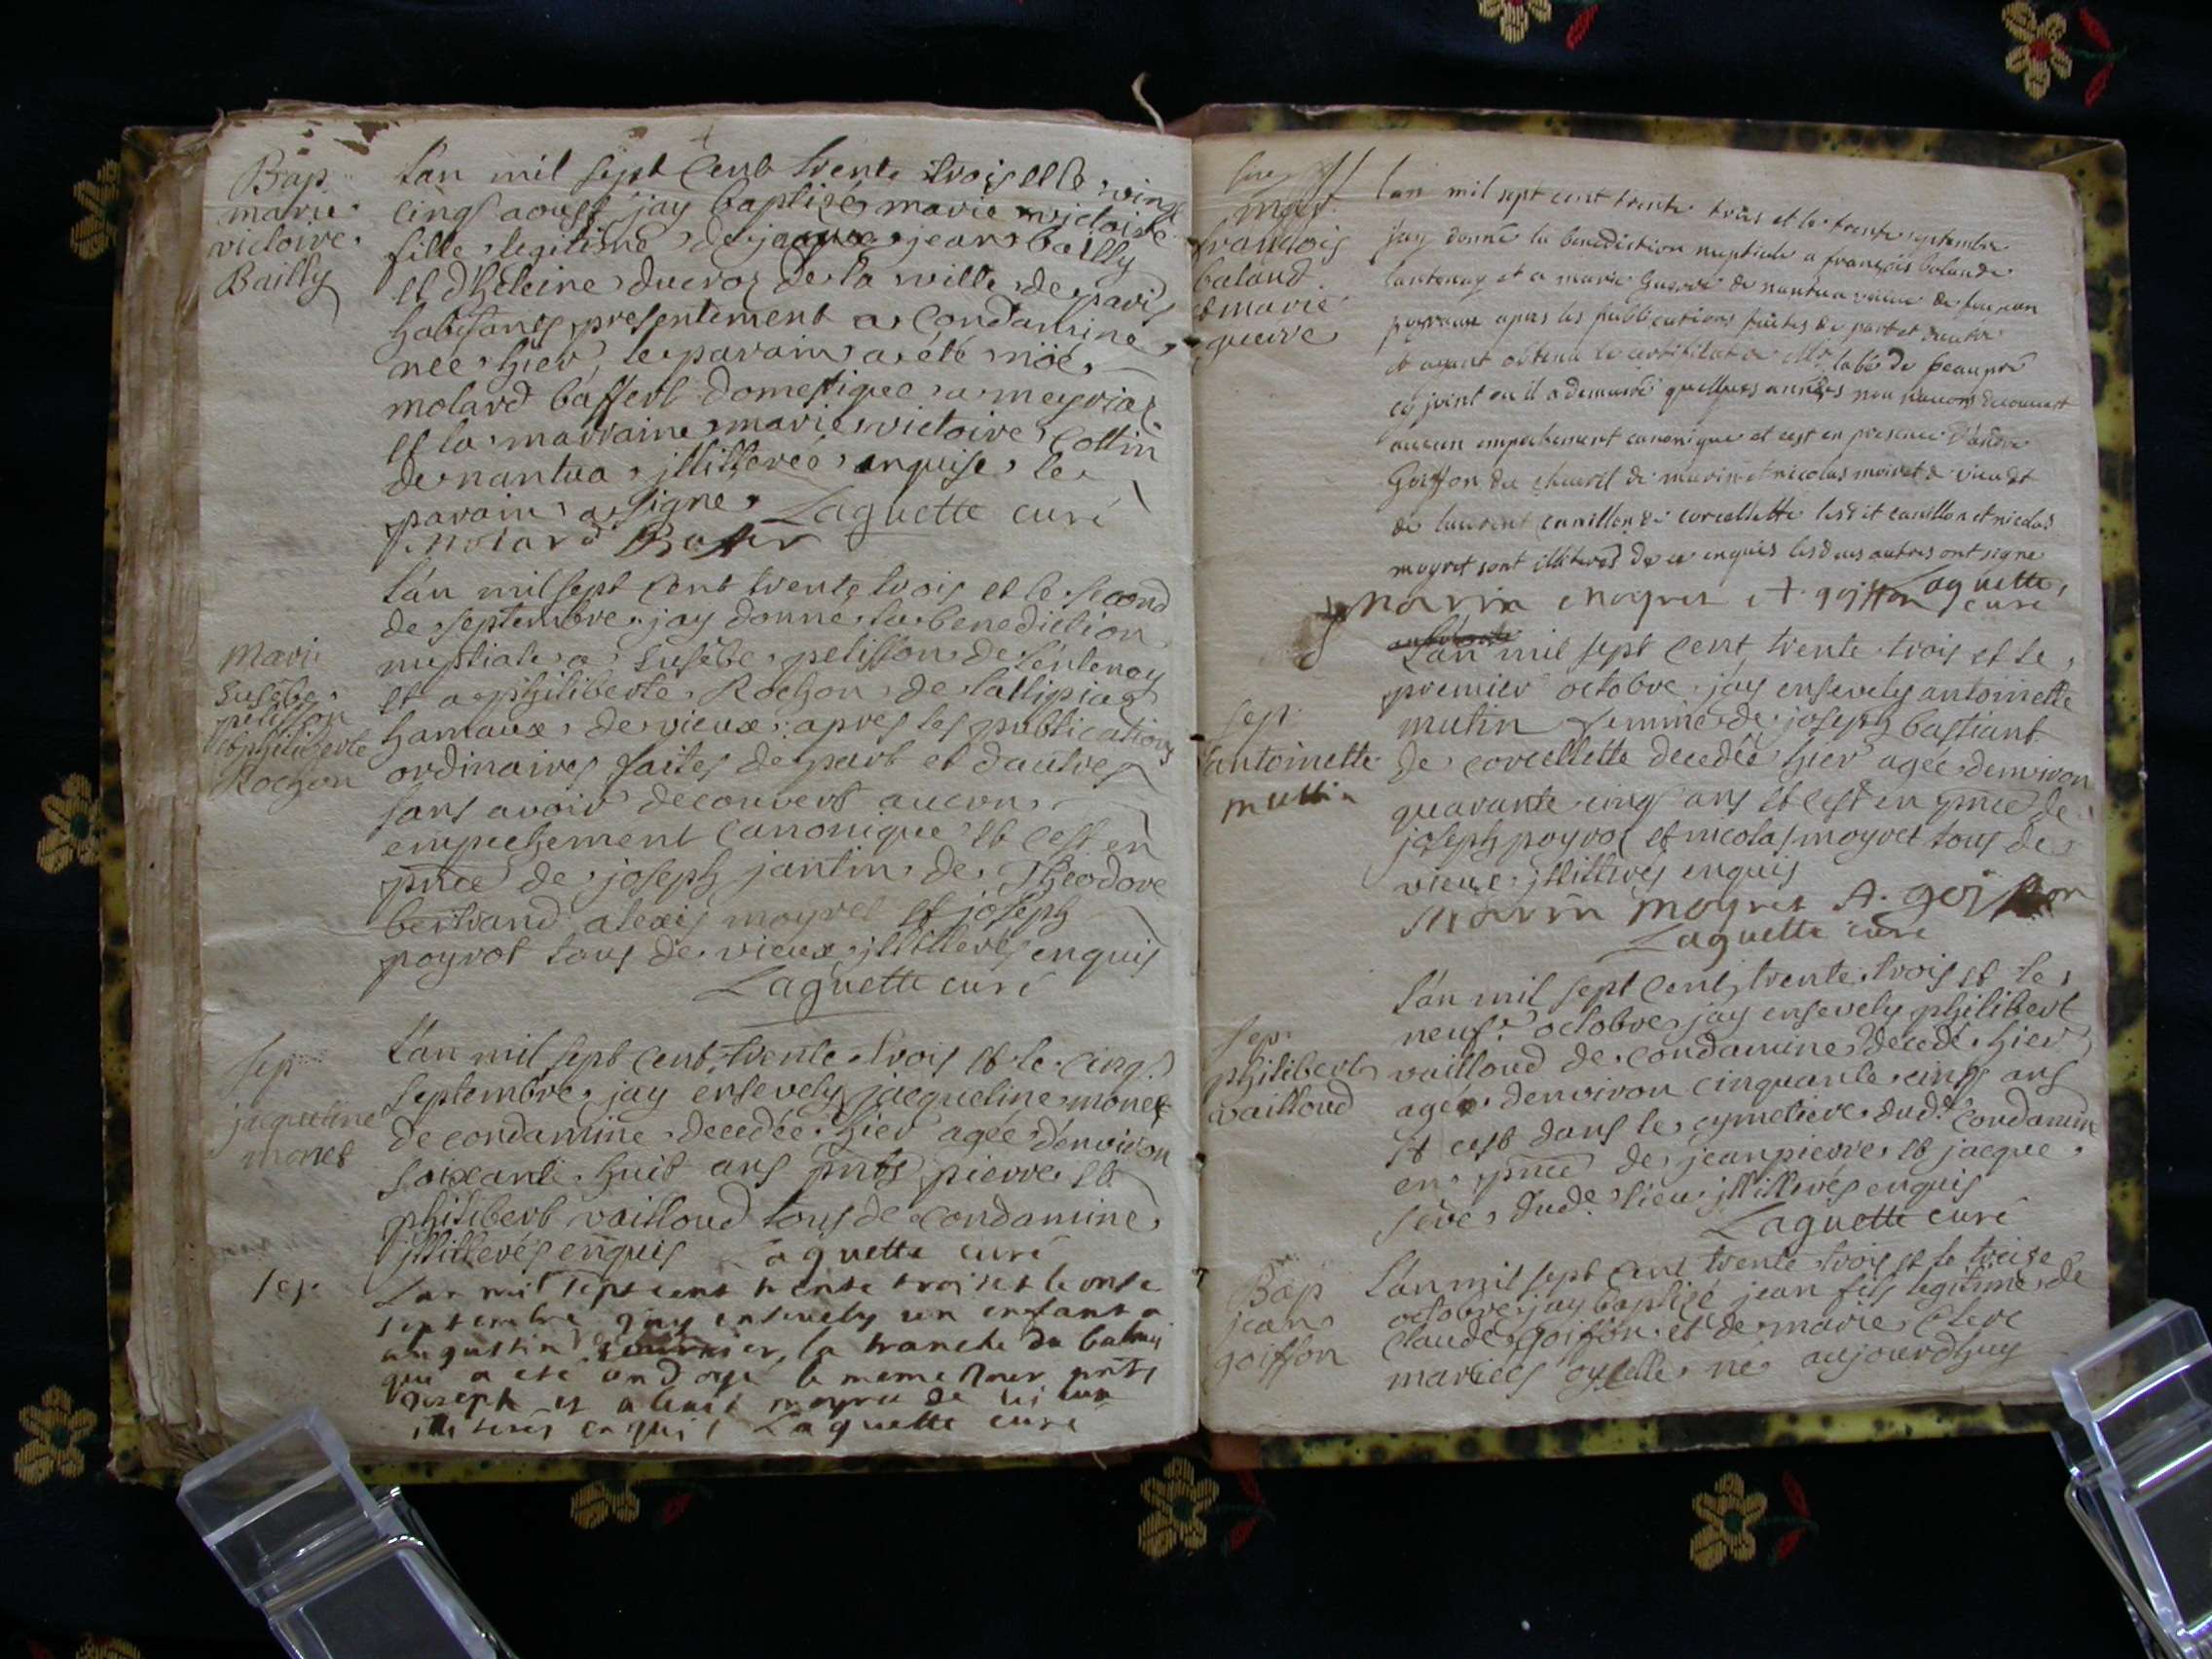 Bap
marie
victoire
Bailly
L'an mil sept cent trente trois et le vingt
cinq aoust jay baptizé marie victoire
fille legitime de jean bailly
et dheleine ducroz de la ville de paris
habitants presentement a Condamine
née hier, le parain a été
molard baffert domestique a meyriat
et la marraine marie victoire Cottin
de nantua jllitterée enquise le
parain a signe Laguette curé
molard
L'an mil sept cent trente trois et le second
de septembre jay donné la benediction
nuptiale a Eusebe pelisson de
et a philiberte Rochon de
hamaux de vieux apres les publications
ordinaires faites de part et dautres
sans avoir decouvert aucun
empechement canonique et cest en
pnce de joseph jantin de Theodore
bertrand alexis moyret et joseph
poyrot tous de vieux jllitterés enquis
Laguette curé
Mari
Eusebe
pelisson
et philiberte
Rochon
L'an mil sept cent trente trois et le cinq
septembre jay ensevely jacqueline monet
de condamine decedée hier agée denviron
soixante huit ans pnts pierre et
philibert vailloud tous de condamine
jllitterés enquis Laguette curé
Sep
jacqueline
monet
Sep
L'an mil sept cent trente trois et le onse
septembre jay ensevely un enfant a
augustin la tranche du
qui a eté ondoye le meme jour pnts
joseph et alexis moyret de vieux
illiterés enquis Laguette curé
mar
francois
baland
et marie
guerre
L'an mil sept cent trente trois et le trente septembre
jay donné la benediction nuptiale a françois balande
lantenay et a marie guerre de nantua veuve de feu jean
apres les publications faites de part et dautre
et ayant obtenu le certificat de labé de beaupré
cy joint ou il a demeuré quelques années nous navons decouvert
aucun empechement canonique et cest en presence dandre
Goiffon du de marin et nicolas moiret de vieu et
de laurent canillon de corcellette lesdit canillon et nicolas
moyret sont illiterés de ce enquis les deux autres ont signe
marin moyret A. goiffon Laguette
curé
L'an mil sept cent trente trois et le
premier octobre jay ensevely antoinette
mutin femme de joseph bastiant
de corcellette decedée hier agée denviron
quarante cinq ans et cest en pnce de
joseph poyrot et nicolas moyret tous de
vieux jllitterés enquis
marin moyret A. goiffon
Laguette curé
Sep
antoinette
mutin
L'an mil sept cent trente trois et le
neuf octobre jay ensevely philibert
vailloud de condamine decedé hier
agé denviron cinquante cinq ans
et cest dans le cymetiere dud. Condamine
en pnce de jean pierre et jacque
seve dud. lieu jllitterés enquis
Laguette curé
Sep
philibert
vailloud
Bap
jean
goiffon
L'an mil sept cent trente trois et le treize
octobre jay baptizé jean fils legitime de
claude goiffon et de marie
mariées né aujourdhuy